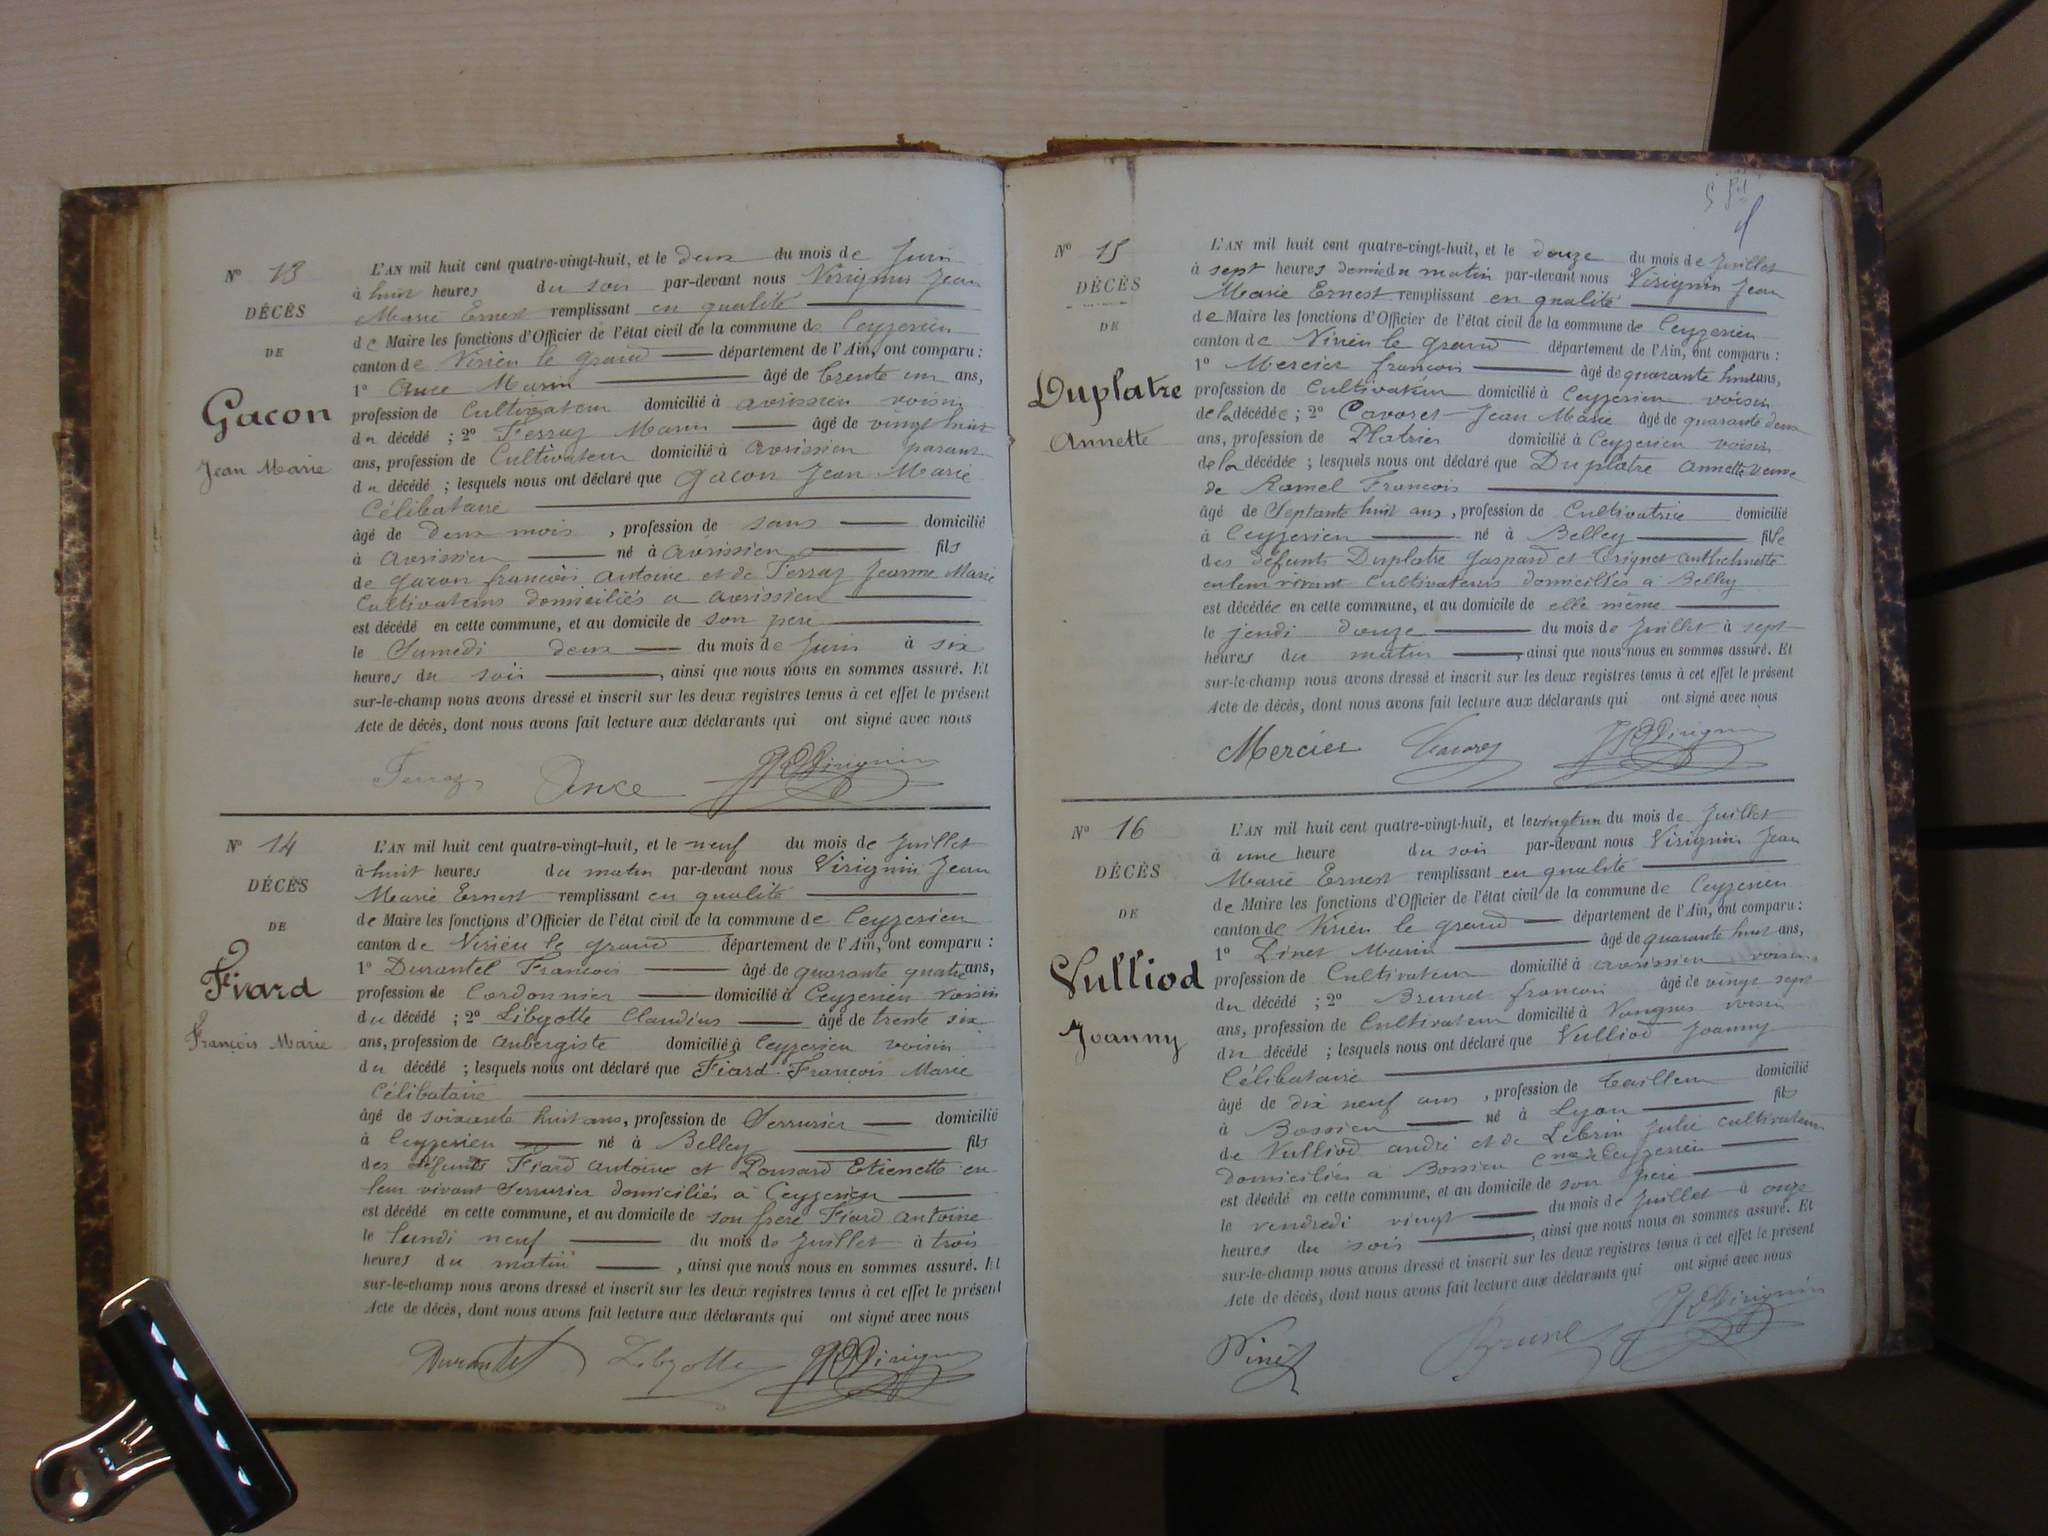 N° 13
DÉCÈS
DE
Gacon
Jean Marie
L'AN mil huit cent quatre-vingt-huit, et le deux du mois de Juin
à huit heures du soir par-devant nous Virignin Jean
Marie Ernest remplissant en qualité
de Maire les fonctions d'Officier de l'état civil de la commune de Ceyzerieu
canton de Virieu le grand département de l'Ain, ont comparu :
1° Ance Marin âgé de trente un ans,
profession de Cultivateur domicilié à avrissieu voisin
du décédé ; 2° Ferraz Marin âgé de vingt huit
ans, profession de Cultivateur domicilié à avrissieu parant
du décédé ; lesquels nous ont déclaré que gacon Jean Marie
Célibataire
âgé de deux mois , profession de sans domicilié
à avrissieu né à avrissieu fils
de gacon francois antoine et de Ferraz Jeanne Marie
Cultivateurs domiciliés a avrissieu
est décédé en cette commune, et au domicile de son pere
le Samedi deux du mois de Juin à six
heures du soir , ainsi que nous nous en sommes assuré. Et
sur-le-champ nous avons dressé et inscrit sur les deux registres tenus à cet effet le présent
Acte de décès, dont nous avons fait lecture aux déclarants qui ont signé avec nous
Ferraz Ance JE Virignin
N° 14
DÉCÈS
DE
Fiard
François Marie
L'AN mil huit cent quatre-vingt-huit, et le neuf du mois de Juillet
à huit heures du matin par-devant nous Virignin Jean
Marie Ernest remplissant en qualité
de Maire les fonctions d'Officier de l'état civil de la commune de Ceyzerieu
canton de Virieu le grand département de l'Ain, ont comparu :
1° Durantel François âgé de quarante quatre ans,
profession de Cordonnier domicilié à Ceyzerieu voisin
du décédé ; 2° Libyotte Claudius âgé de trente six
ans, profession de aubergiste domicilié à Ceyzerieu voisin
du décédé ; lesquels nous ont déclaré que Fiard François Marie
Célibataire
âgé de soixante huit ans, profession de Serrurier domicilié
à Ceyzerieu né à Belley fils
des défunts Fiard antoine et Ponsard Etienette en
leur vivant Serrurier domiciliés a Ceyzerieu
est décédé en cette commune, et au domicile de son frere Fiard antoine
le lundi neuf du mois de Juillet à trois
heures du matin , ainsi que nous nous en sommes assuré. Et
sur-le-champ nous avons dressé et inscrit sur les deux registres tenus à cet effet le présent
Acte de décès, dont nous avons fait lecture aux déclarants qui ont signé avec nous
Durantel Libyotte JE Virignin
N° 15
DÉCÈS
DE
Duplatre
Annette
L'AN mil huit cent quatre-vingt-huit, et le douze du mois de Juillet
à sept heures demie du matin par-devant nous Virignin Jean
Marie Ernest remplissant en qualité
de Maire les fonctions d'Officier de l'état civil de la commune de Ceyzerieu
canton de Virieu le grand département de l'Ain, ont comparu :
1° Mercier françois âgé de quarante huit ans,
profession de Cultivateur domicilié à Ceyzerieu voisin
de la décédée ; 2° Cavoret Jean Marie âgé de quarante deux
ans, profession de Platrier domicilié à Ceyzerieu voisin
de la décédée ; lesquels nous ont déclaré que Duplatre annette veuve
de Ramel François
âgé de Septante huit ans, profession de Cultivatrice domicilié
à Ceyzerieu né à Belley fille
des défunts Duplatre Gaspard et Trignet anthelmette
en leur vivant Cultivateurs domiciliés a Belley
est décédée en cette commune, et au domicile de elle même
le jeudi douze du mois de Juillet à sept
heures du matin , ainsi que nous nous en sommes assuré. Et
sur-le-champ nous avons dressé et inscrit sur les deux registres tenus à cet effet le présent
Acte de décès, dont nous avons fait lecture aux déclarants qui ont signé avec nous
Mercier Cavoret JE Virignin
N° 16
DÉCÈS
DE
Vulliod
Joanny
L'AN mil huit cent quatre-vingt-huit, et le vingt un du mois de Juillet
à une heure du soir par-devant nous Virignin Jean
Marie Ernest remplissant en qualité
de Maire les fonctions d'Officier de l'état civil de la commune de Ceyzerieu
canton de Virieu le grand département de l'Ain, ont comparu :
1° Pinet Marin âgé de quarante huit ans,
profession de Cultivateur domicilié à avrissieu voisin
du décédé ; 2° Brunet françois âgé de vingt sept
ans, profession de Cultivateur domicilié à Vongnes voisin
du décédé ; lesquels nous ont déclaré que Vulliod Joanny
Célibataire
âgé de dix neuf ans , profession de tailleur domicilié
à Bossieu né à Lyon fils
de Vulliod andré et de Lebrin Julie cultivateurs
domiciliés a Bossieu Cne de Ceyzerieu
est décédé en cette commune, et au domicile de son pere
le vendredi vingt du mois de Juillet à onze
heures du soir , ainsi que nous nous en sommes assuré. Et
sur-le-champ nous avons dressé et inscrit sur les deux registres tenus à cet effet le présent
Acte de décès, dont nous avons fait lecture aux déclarants qui ont signé avec nous
Pinet Brunet JE Virignin